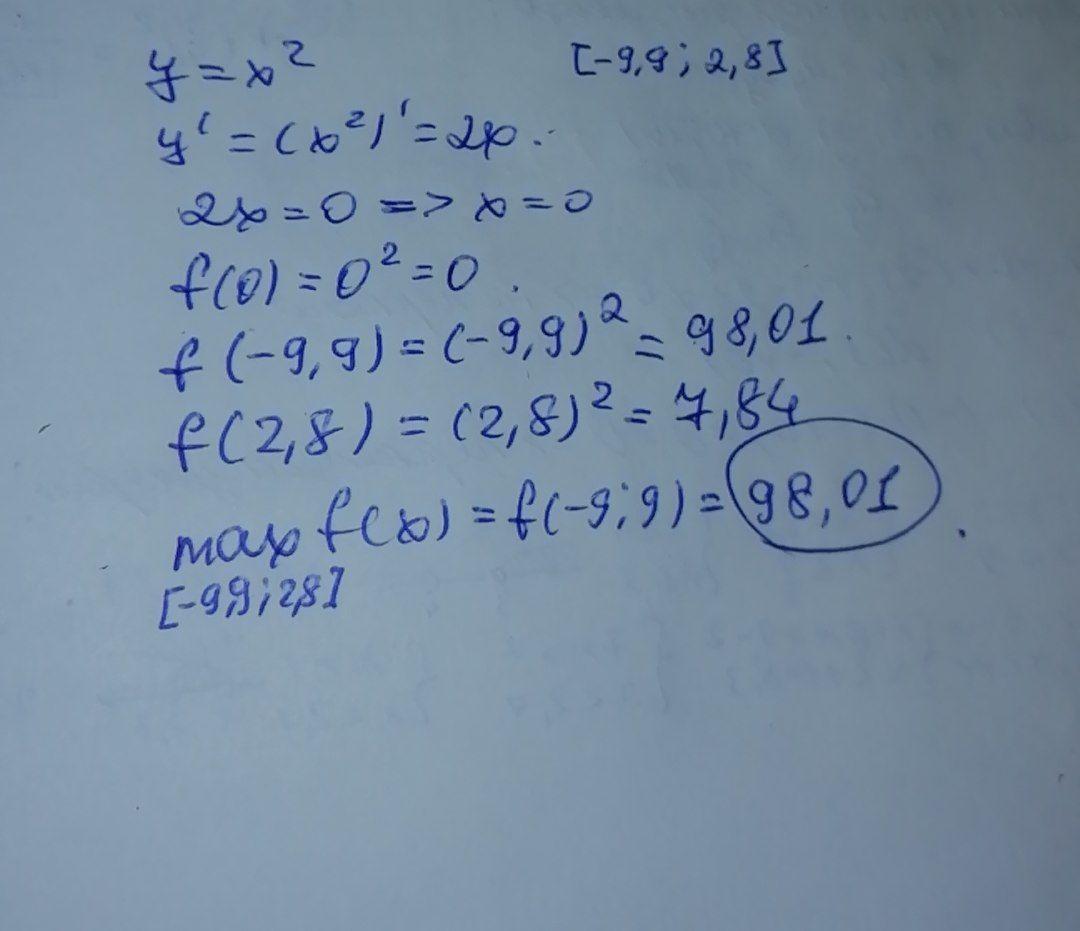 y = x² [-9,9 ; 2,8]
y' = (x²)' = 2x.
2x = 0 => x = 0
f(0) = 0² = 0.
f(-9,9) = (-9,9)² = 98,01.
f(2,8) = (2,8)² = 7,84
max f(x) = f(-9;9) = 98,01.
[-9,9; 2,8]